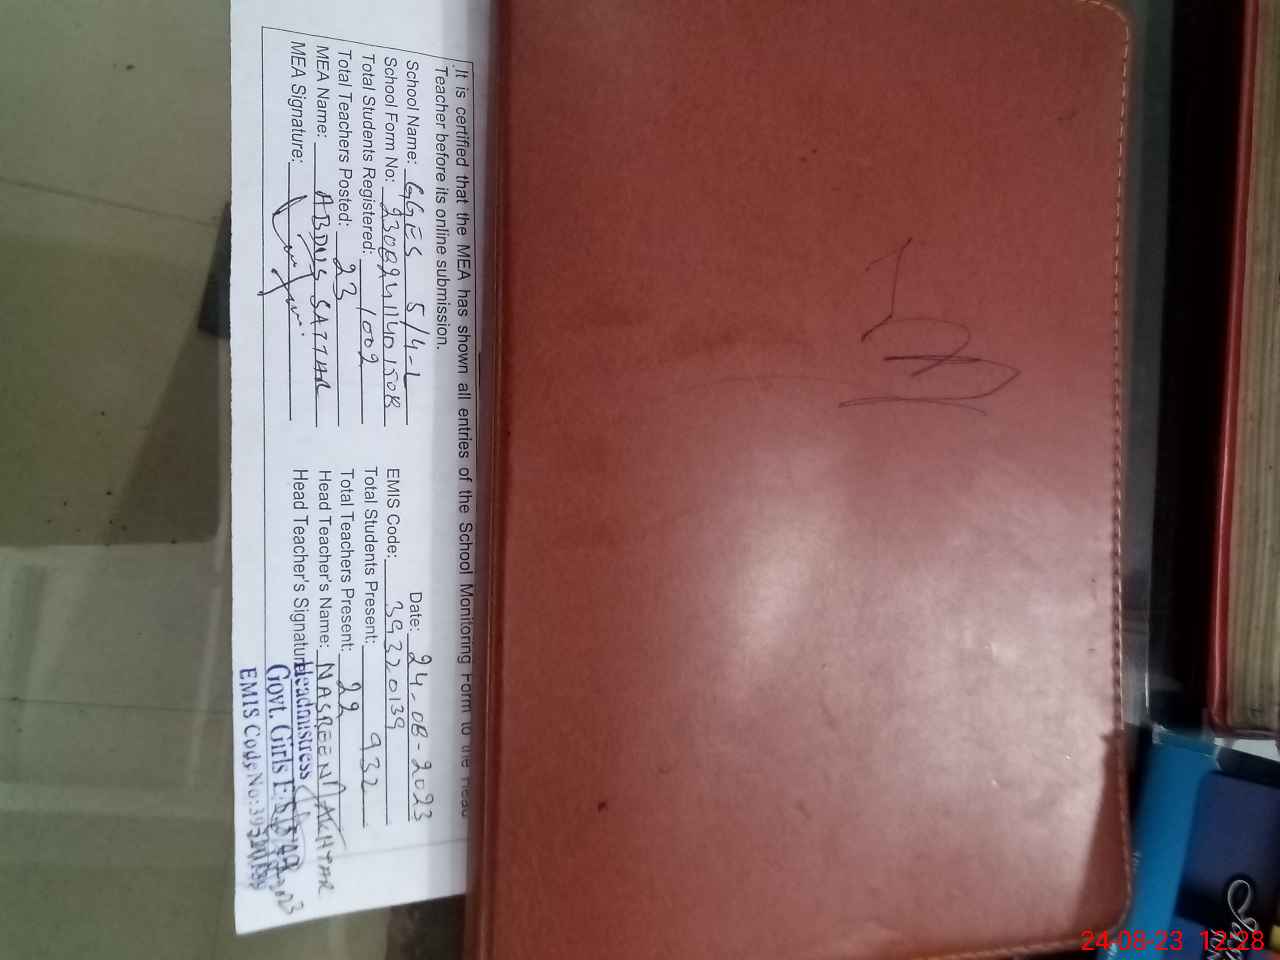 It is certified that the MEA has shown all entries of the School Monitoring Form to the Head
Teacher before its online submission.
Date: 24-08-2023
School Name: GGES 5/4-L
School Form No: EMIS Code: 39320139
Total Students Registered: 1002 Total Students Present: 932
Total Teachers Posted: 23 Total Teachers Present: 22
MEA Name: ABDUS SATTAR Head Teacher's Name: NASREEN AKHTAR
MEA Signature: Head Teacher's Signature
Headmistress
Govt. Girls E.
EMIS Code No:
24-08-23 12:28